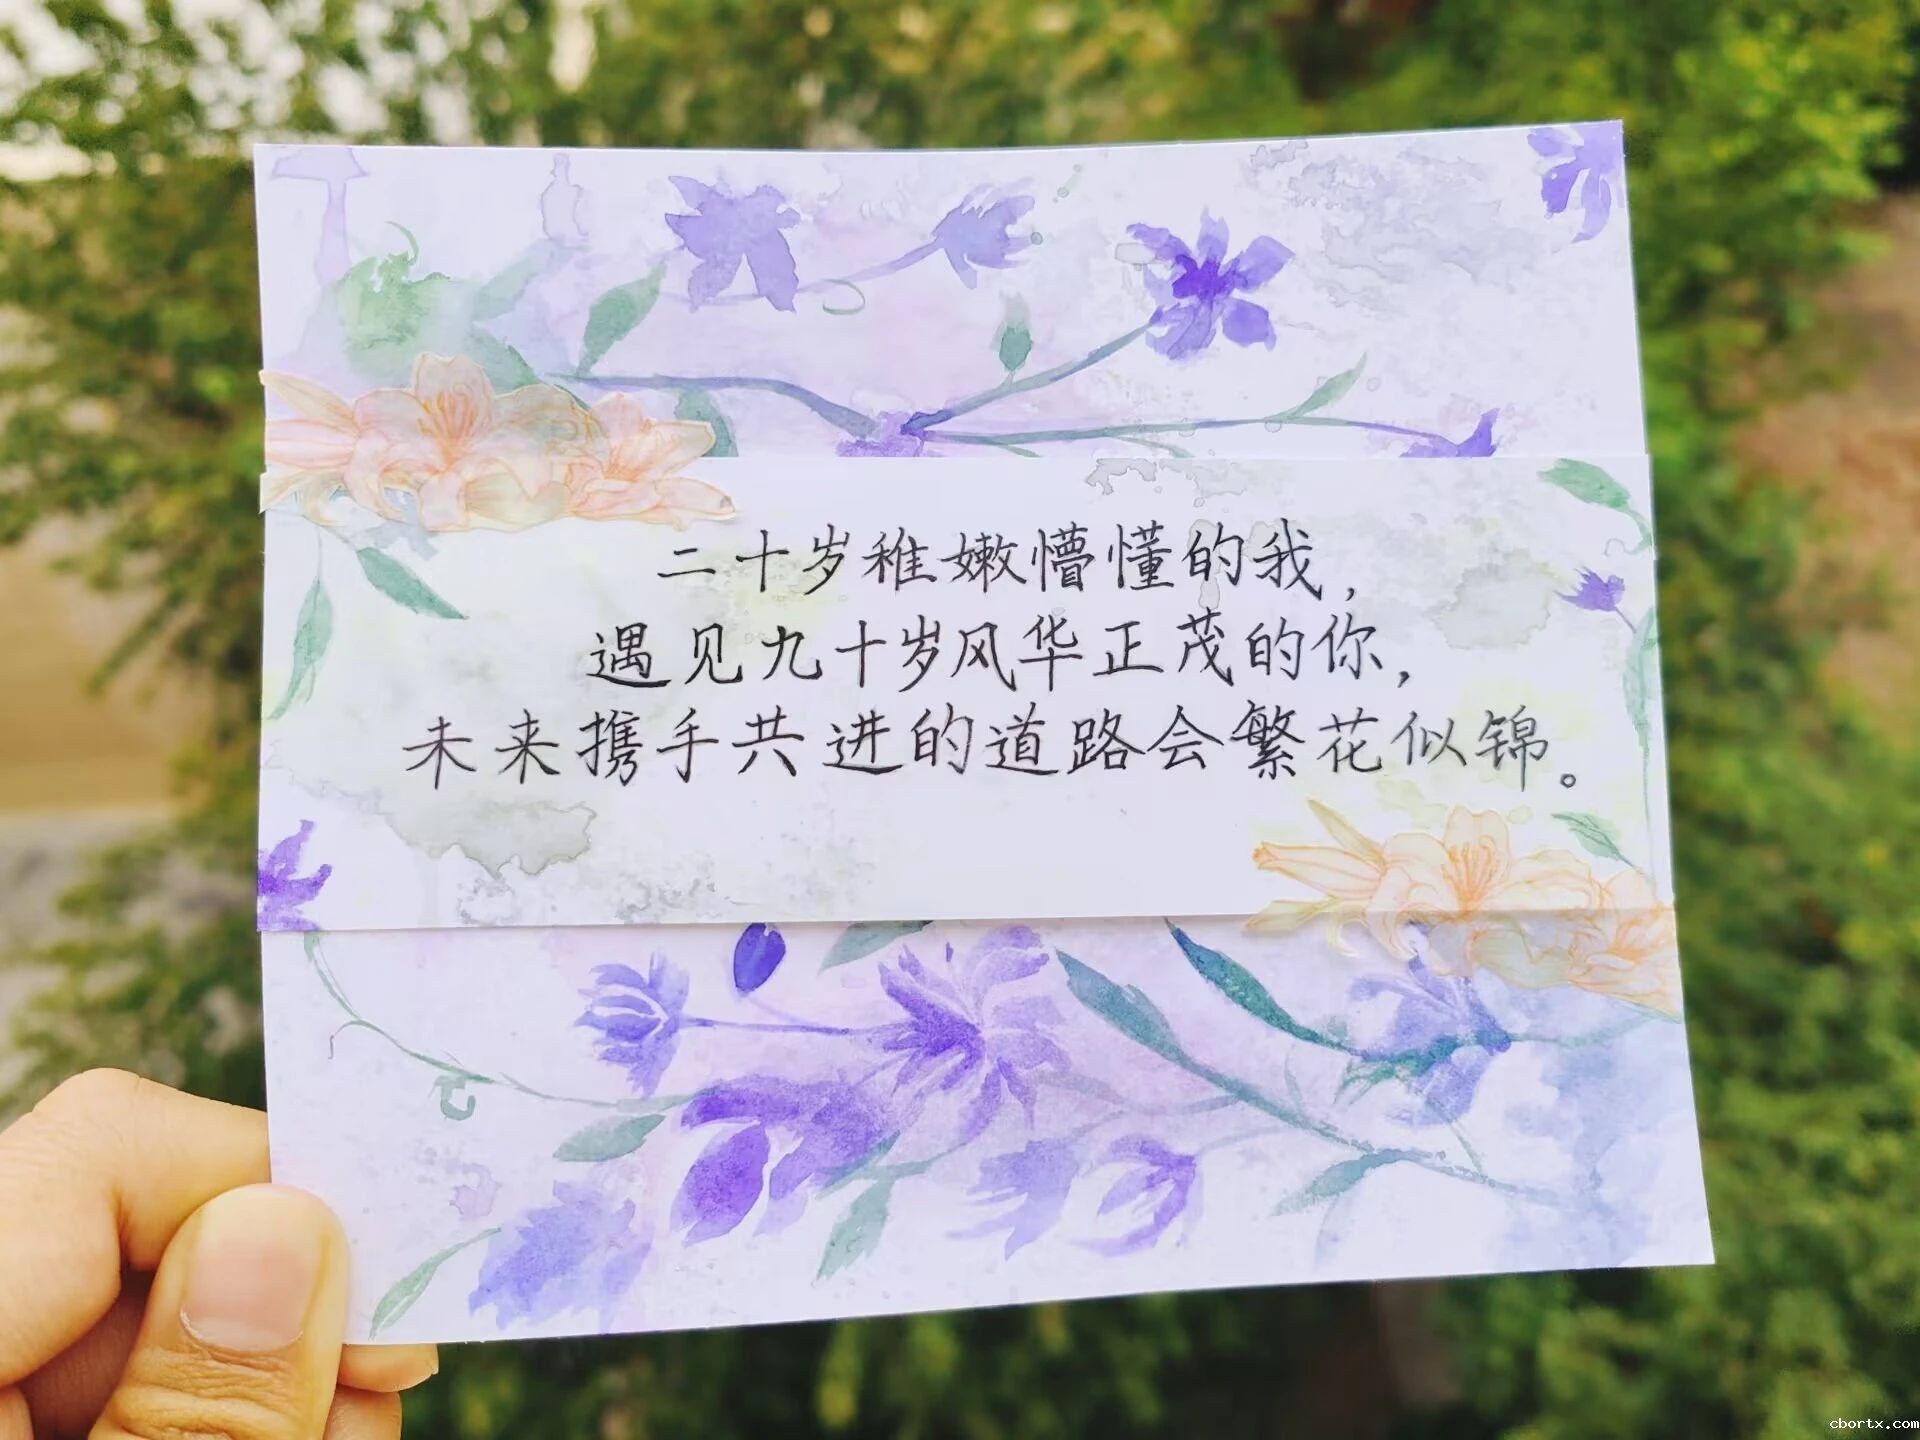 二十岁稚嫩懵懂的我，
遇见九十岁风华正茂的你，
未来携手共进的道路会繁花似锦。
cbortx.com